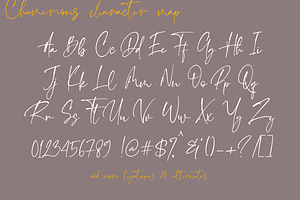 Chamerions character map
Aa Bb Cc Dd Ee Ff Gg Hh Ii
Jj Kk Ll Mm Nn Oo Pp Qq
Rr Ss Tt Uu Vv Ww Xx Yy Zz
0123456789 !@#$%^&*()-+?[]
and more ligatures & alternates